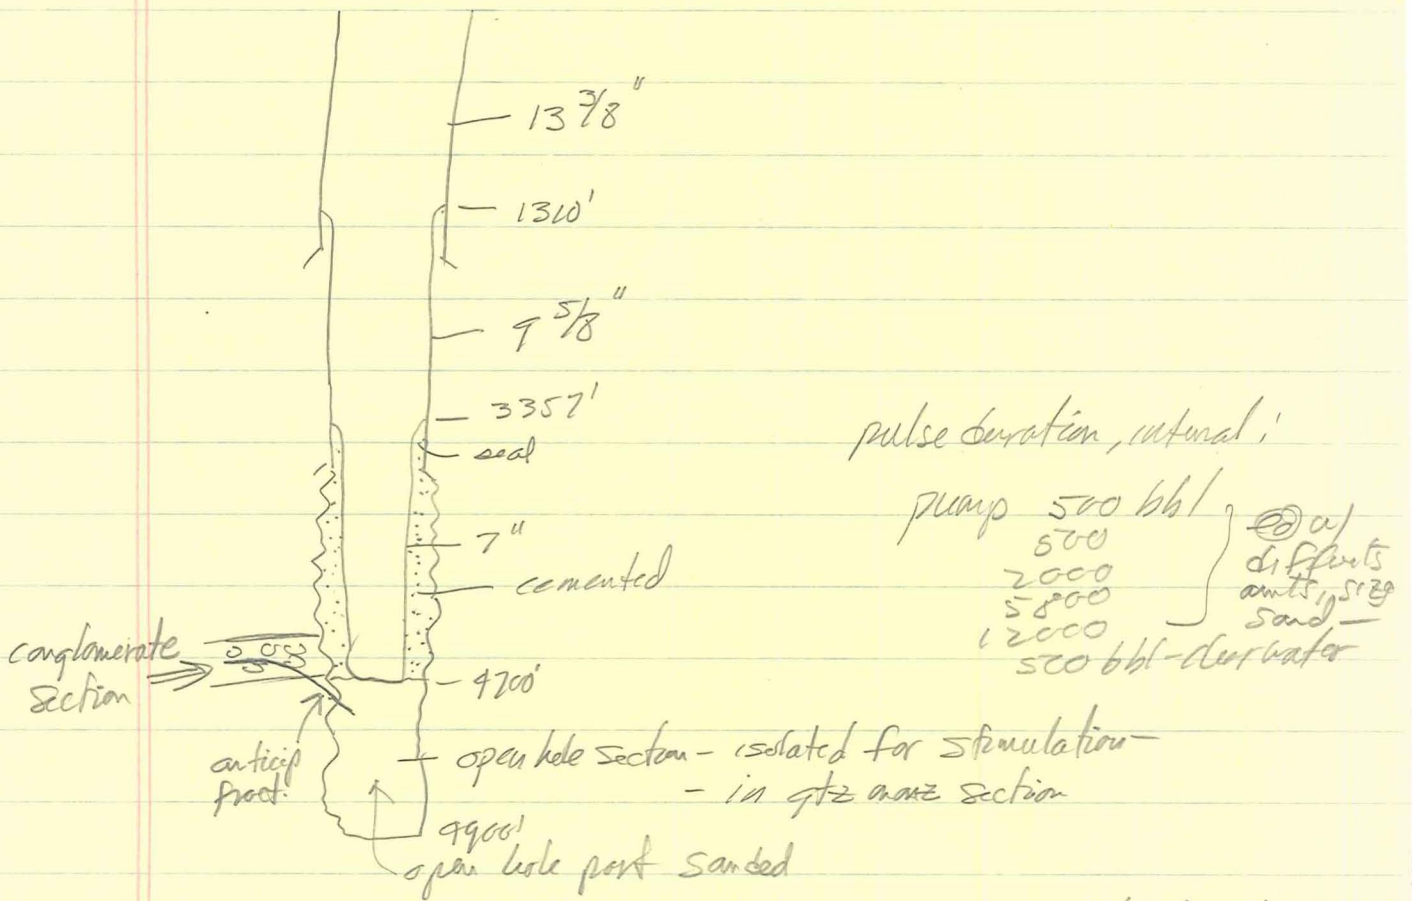 13 3/8"
1310'
9 5/8"
3357'
seal
7"
cemented
conglomerate
section
4700'
anticip
fract.
open hole section - isolated for stimulation -
- in qtz monz section
4900'
open hole part sanded
pulse duration, interval:
pump 500 bbl
500
2000
5800
12000
500 bbl - clear water
w/
amts, size
sand -